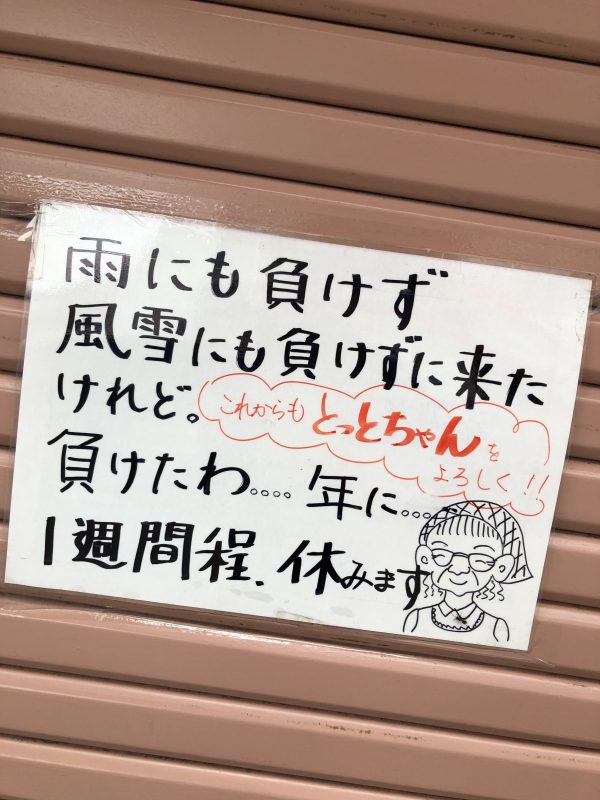 雨にも負けず
風雪にも負けずに来た
けれど。
これからもとっとちゃんを
よろしく!!
負けたわ.... 年に....
1週間程、休みます